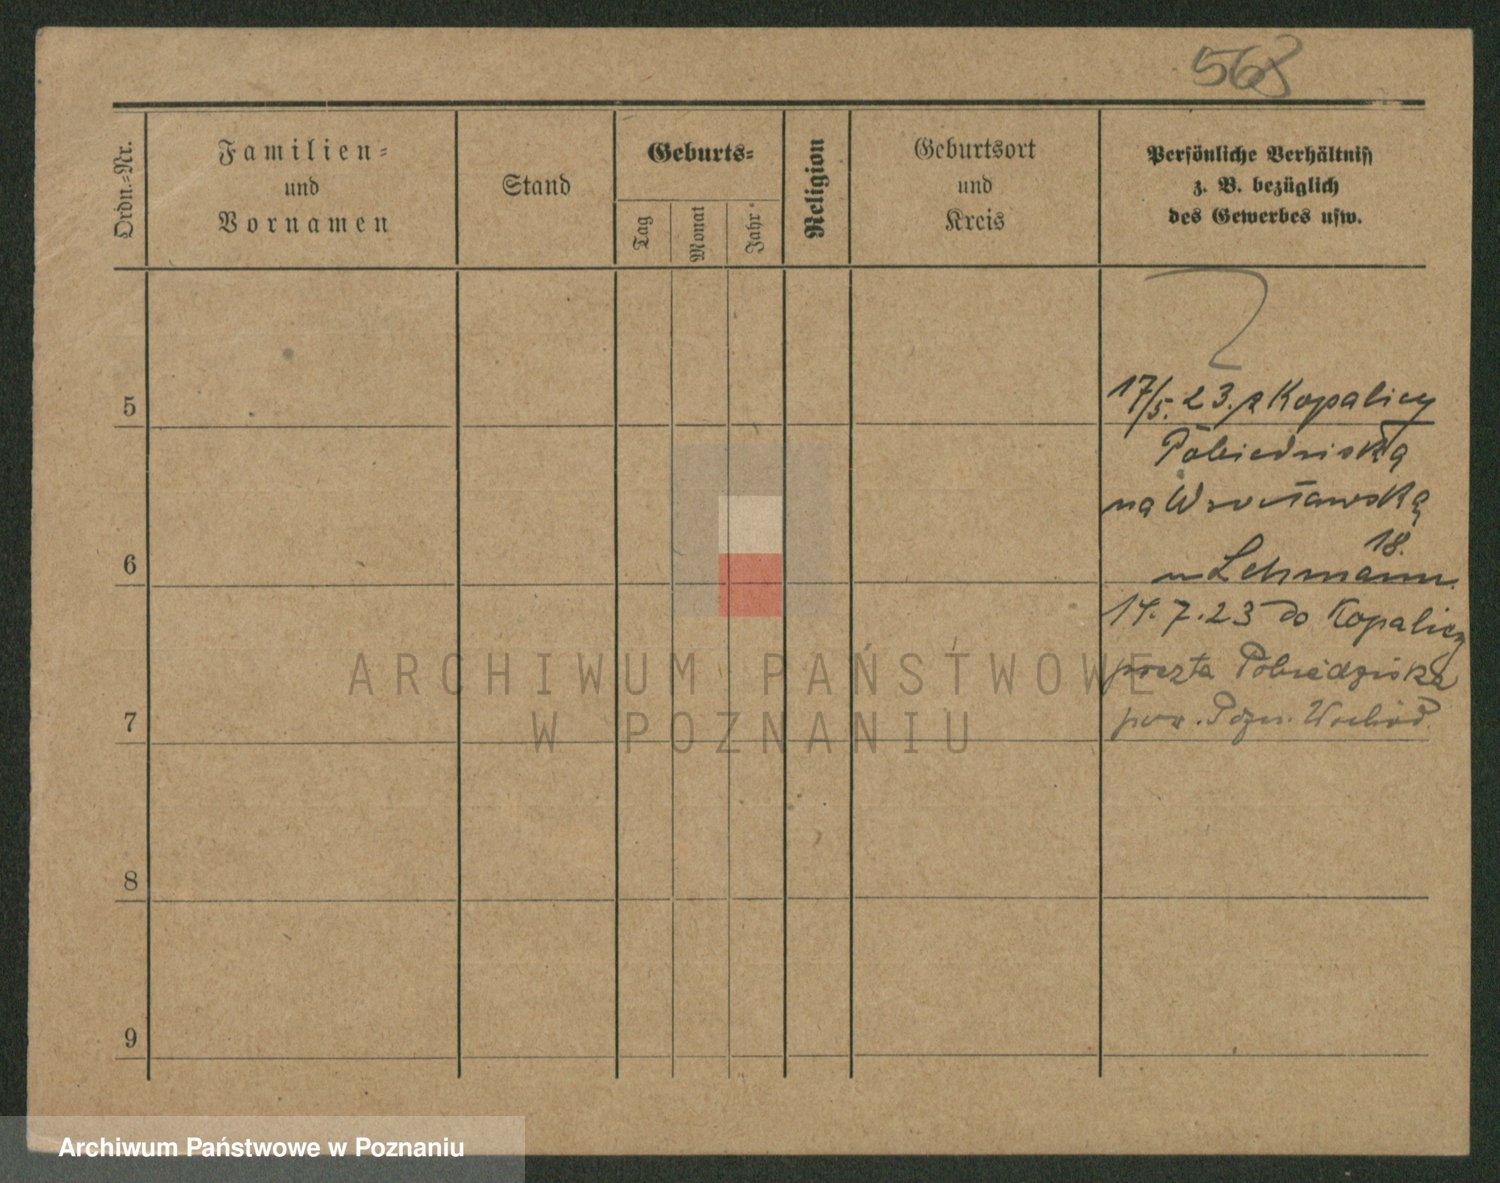 568
Ordn.-Nr.
Familien-
und
Vornamen
Stand
Geburts-
Tag
Monat
Jahr
Religion
Geburtsort
und
Kreis
Persönliche Verhältniss
z. B. bezüglich
des Gewerbes usw.
5
17/5. 23. z Kopalicy
Pobiedziską
na Wrocławską
18.
6
u Lehmann.
14.7.23 do Kopalicy
poczta Pobiedziska
7
pow. Pozn. Wschód
8
9
ARCHIWUM PAŃSTWOWE
W POZNANIU
Archiwum Państwowe w Poznaniu